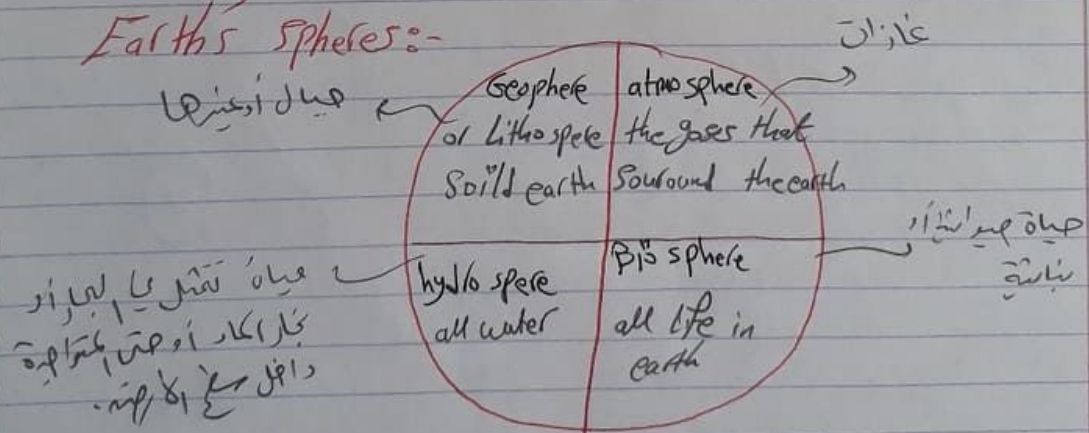 Earth's spheres:-
غازات
جبال أو غيرها
Geophere
or Litho spere
Soild earth
atmosphere
the gases that
Souround the earth
حياة حيوانية أو
نباتية
hydro spere
all water
Bio sphere
all life in
earth
مياه تتمثل في البحار أو
بخار الماء أو حتى المتواجدة
داخل سطح الأرض.